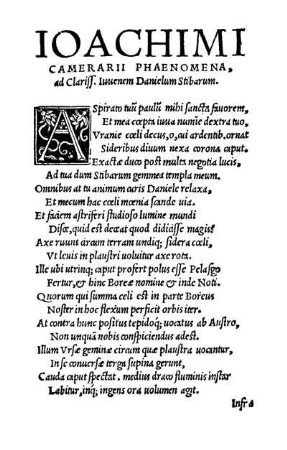 IOACHIMI
CAMERARII PHAENOMENA,
ad Clariss. Iuuenem Danielum Stibarum.
ASpirato tuũ paulũ mihi sancta fauorem,
Et mea cœpta iuua numine dextra tuo,
Vranie cœli decus, o, qui ardentib. ornat
Sideribus diuum nexa corona caput.
Exactæ duco post multa negotia lucis,
Ad tua dum Stibarum gemmea templa meum.
Omnibus at tu animum curis Daniele relaxa,
Et mecum hac cœli mœnia sande uia.
Et faciem astriferi studioso lumine mundi
Disce, quid est deceat quod didicisse magis?
Axe ruunt circum terram undiq; sidera cœli,
Vt leuis in plaustri uoluitur axe rota.
Ille ubi utrinq; caput profert polus esse Pelasgo
Fertur, & hinc Boreæ nomine & inde Noti.
Quorum qui summa celi est in parte Boreus
Noster in hoc flexum perficit orbis iter.
At contra hunc positus tepidoq; uocatus ab Austro,
Non unquã nobis conspiciendus adest.
Illum Vrsæ geminæ circum quæ plaustra uocantur,
In se conuersæ terga supina gerunt,
Cauda caput spectat. medius draco fluminis instar
Labitur, inq; ingens ora uolumen agit.
Infra